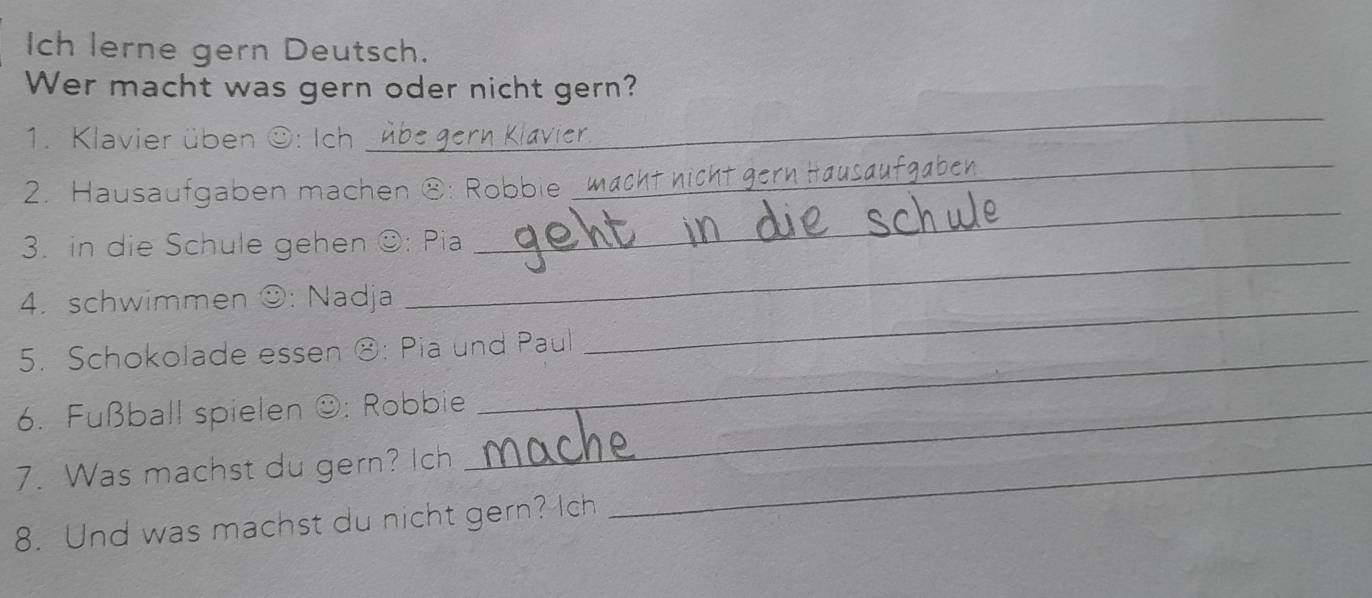 Ich lerne gern Deutsch.
Wer macht was gern oder nicht gern?
1. Klavier üben ☺: Ich übe gern Klavier.
2. Hausaufgaben machen ☹: Robbie macht nicht gern Hausaufgaben.
3. in die Schule gehen ☺: Pia geht in die schule
4. schwimmen ☺: Nadja
5. Schokolade essen ☹: Pia und Paul
6. Fußball spielen ☺: Robbie
7. Was machst du gern? Ich mache
8. Und was machst du nicht gern? Ich